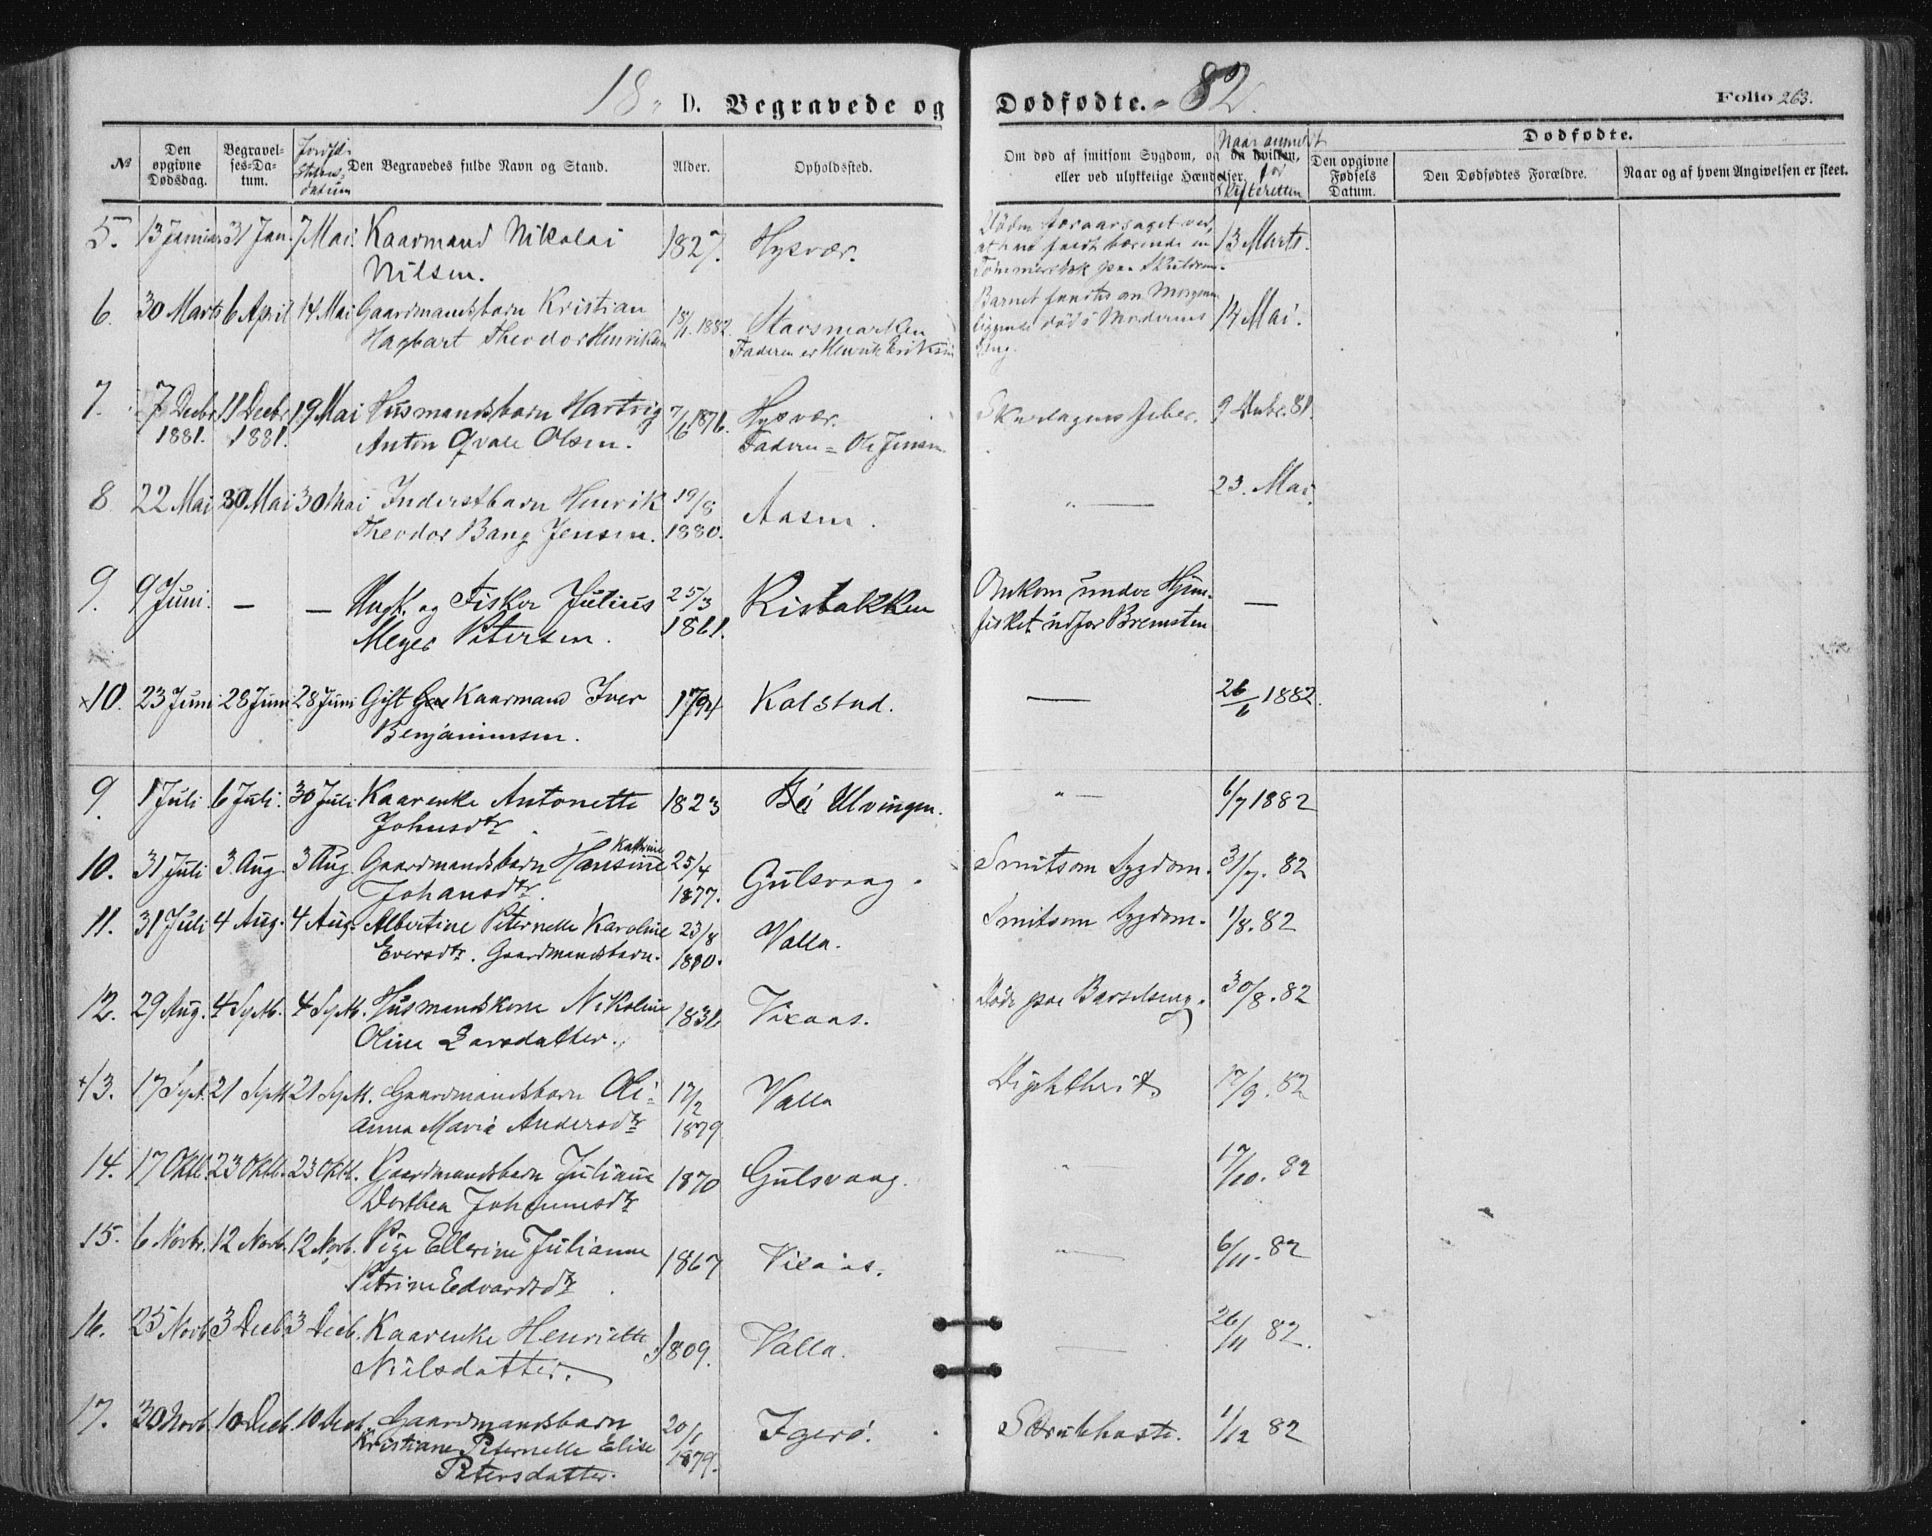 18 D. Begravede og Dødfødte. 82.
Folio 263.
№
Den opgivne Dødsdag.
Begravelses-Datum.
Jordfæstelsesdatum
Den Begravedes fulde Navn og Stand.
Alder.
Opholdssted.
Om død af smitsom Sygdom, og da hvilken, eller ved ulykkelige Hændelser.
Naar anmeldt for Skifteretten
Dødfødte.
Den opgivne Fødsels Datum.
Den Dødfødtes Forældre.
Naar og af hvem Angivelsen er skeet.
5. 13 Januar 31 Jan. 7 Mai. Kaarmand Nikolai 1827. Hysvær. Døden foraarsaget ved, 13 Marts.
Nilsen. at han faldt bærende en
Tømmerstok paa Skuldren.
6. 30 Marts 6 April 14 Mai Gaardmandsbarn Kristian 18/1 1882. Stavsmarken Barnet fandtes om Morgenen 14 Mai.
Hagbart Theodor Henriksen Faderen er Henrik Eriksen liggende død i Moderens
Seng.
7. 7 Decbr 11 Decbr 19 Mai Husmandsbarn Hartvig 7/6 1876. Hysvær. Skarlagensfeber. 9 Decbr. 81.
1881. 1881. Anton Qvale Olsen. Faderen = Ole Jensen
8 22 Mai 30 Mai 30 Mai Inderstbarn Henrik 19/8 Aasen. " — 23. Mai.
Theodor Bang Jensen. 1880.
9. 9 Juni. — — Ungk. og Fisker Julius 25/3 Risbakken Omkom under Hjem- —
Meyer Petersen. 1861. fisket udfor Bremsten
×10. 23 Juni 28 Juni 28 Juni Gift Kaarmand Iver 1794 Kalstad. — 26/6 1882.
Benjaminsen.
9. 1 Juli 6 Juli. 30 Juli Kaarenke Antonette 1823 Ulvingen. " — 6/7 1882
Johnsdtr.
10. 31 Juli 3 Aug. 3 Aug Gaardmandsbarn Hansine Kathrine 25/4 Gulsvaag. Smitsom Sygdom. 31/7. 82
Johansdtr. 1877.
11. 31 Juli 4 Aug. 4 Aug. Albertine Peternelle Karoline 23/8 Valla. Smitsom Sygdom. 1/8. 82
Eversdtr. Gaardmandsbarn. 1880.
12. 29 Aug. 4 Septb. 4 Septb. Husmandskone Nikoline 1836 Vixaas. Døde paa Barselseng. 30/8. 82
Olina Larsdatter.
×13. 17 Sept. 21 Septb 21 Septb. Gaardmandsbarn Oli- 17/2 Valla Diphtherit. 17/9. 82
anna Maria Andersdtr 1879
14. 17 Oktb. 23 Oktb. 23 Oktb. Gaardmandsbarn Juliane 1870 Gulsvaag. " 17/10. 82
Dorthea Johannesdtr
15. 6 Novbr. 12 Novb. 12 Novb. Pige Ellerine Julianne 1867 Vixaas. " — 6/11. 82
Petrine Edvardsdtr.
16. 25 Novb 3 Decb 3 Decb. Kaarenke Henriette 1809. Valla. — 26/11 82.
Nielsdatter.
17. 30 Novb. 10 Decb. 10 Decb. Gaardmandsbarn 20/1 Igerø. Strubhoste. 1/12 82
Kristiane Peternelle Elise 1879.
Petersdatter.